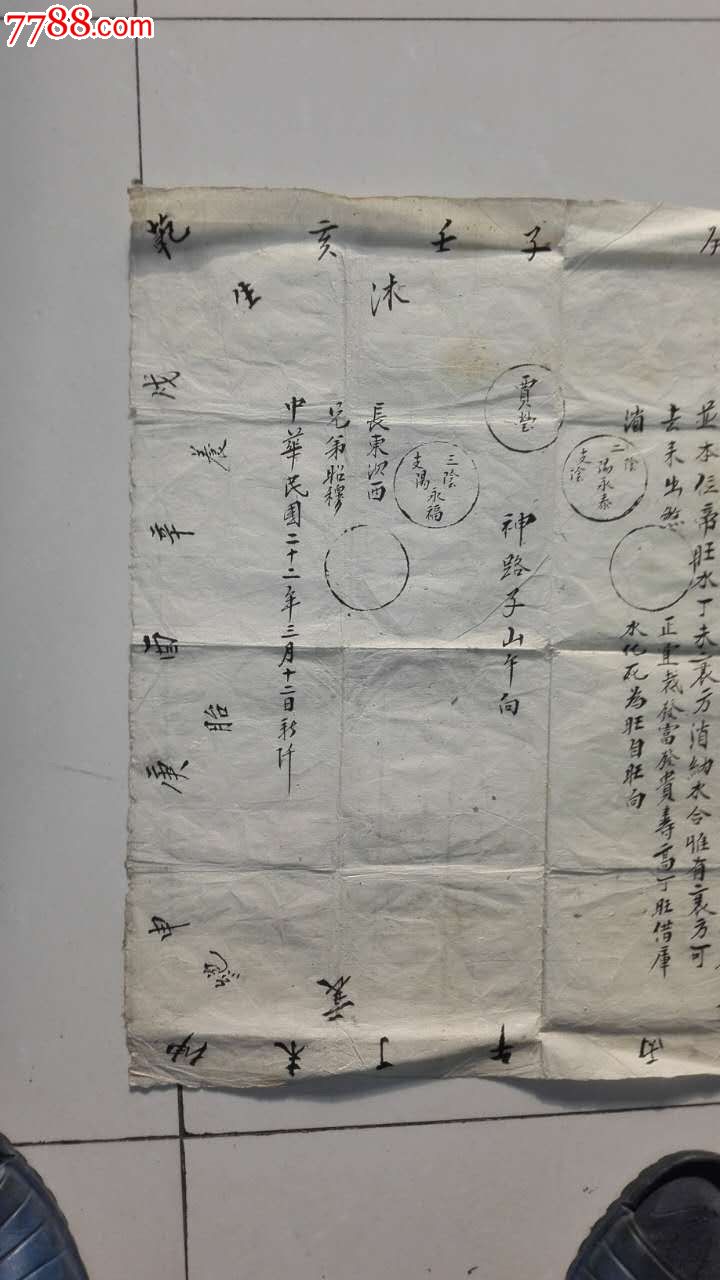 7788.com
乾 亥 壬 子
生 沐
戌
養
辛
酉
胎
庚
申
絕
坤 未 丁 午 丙
衰
並本位帝旺水丁未衰方消納水合惟有衰方可
去來出煞 正重裁發富發貴壽高丁旺借庫
消 水化死為旺自旺向
二陰
陽永泰
支陰
賈瑩
神路子山午向
三陰
永福
支陽
長東次西
兄弟昭穆
中華民國二十二年三月十二日新阡